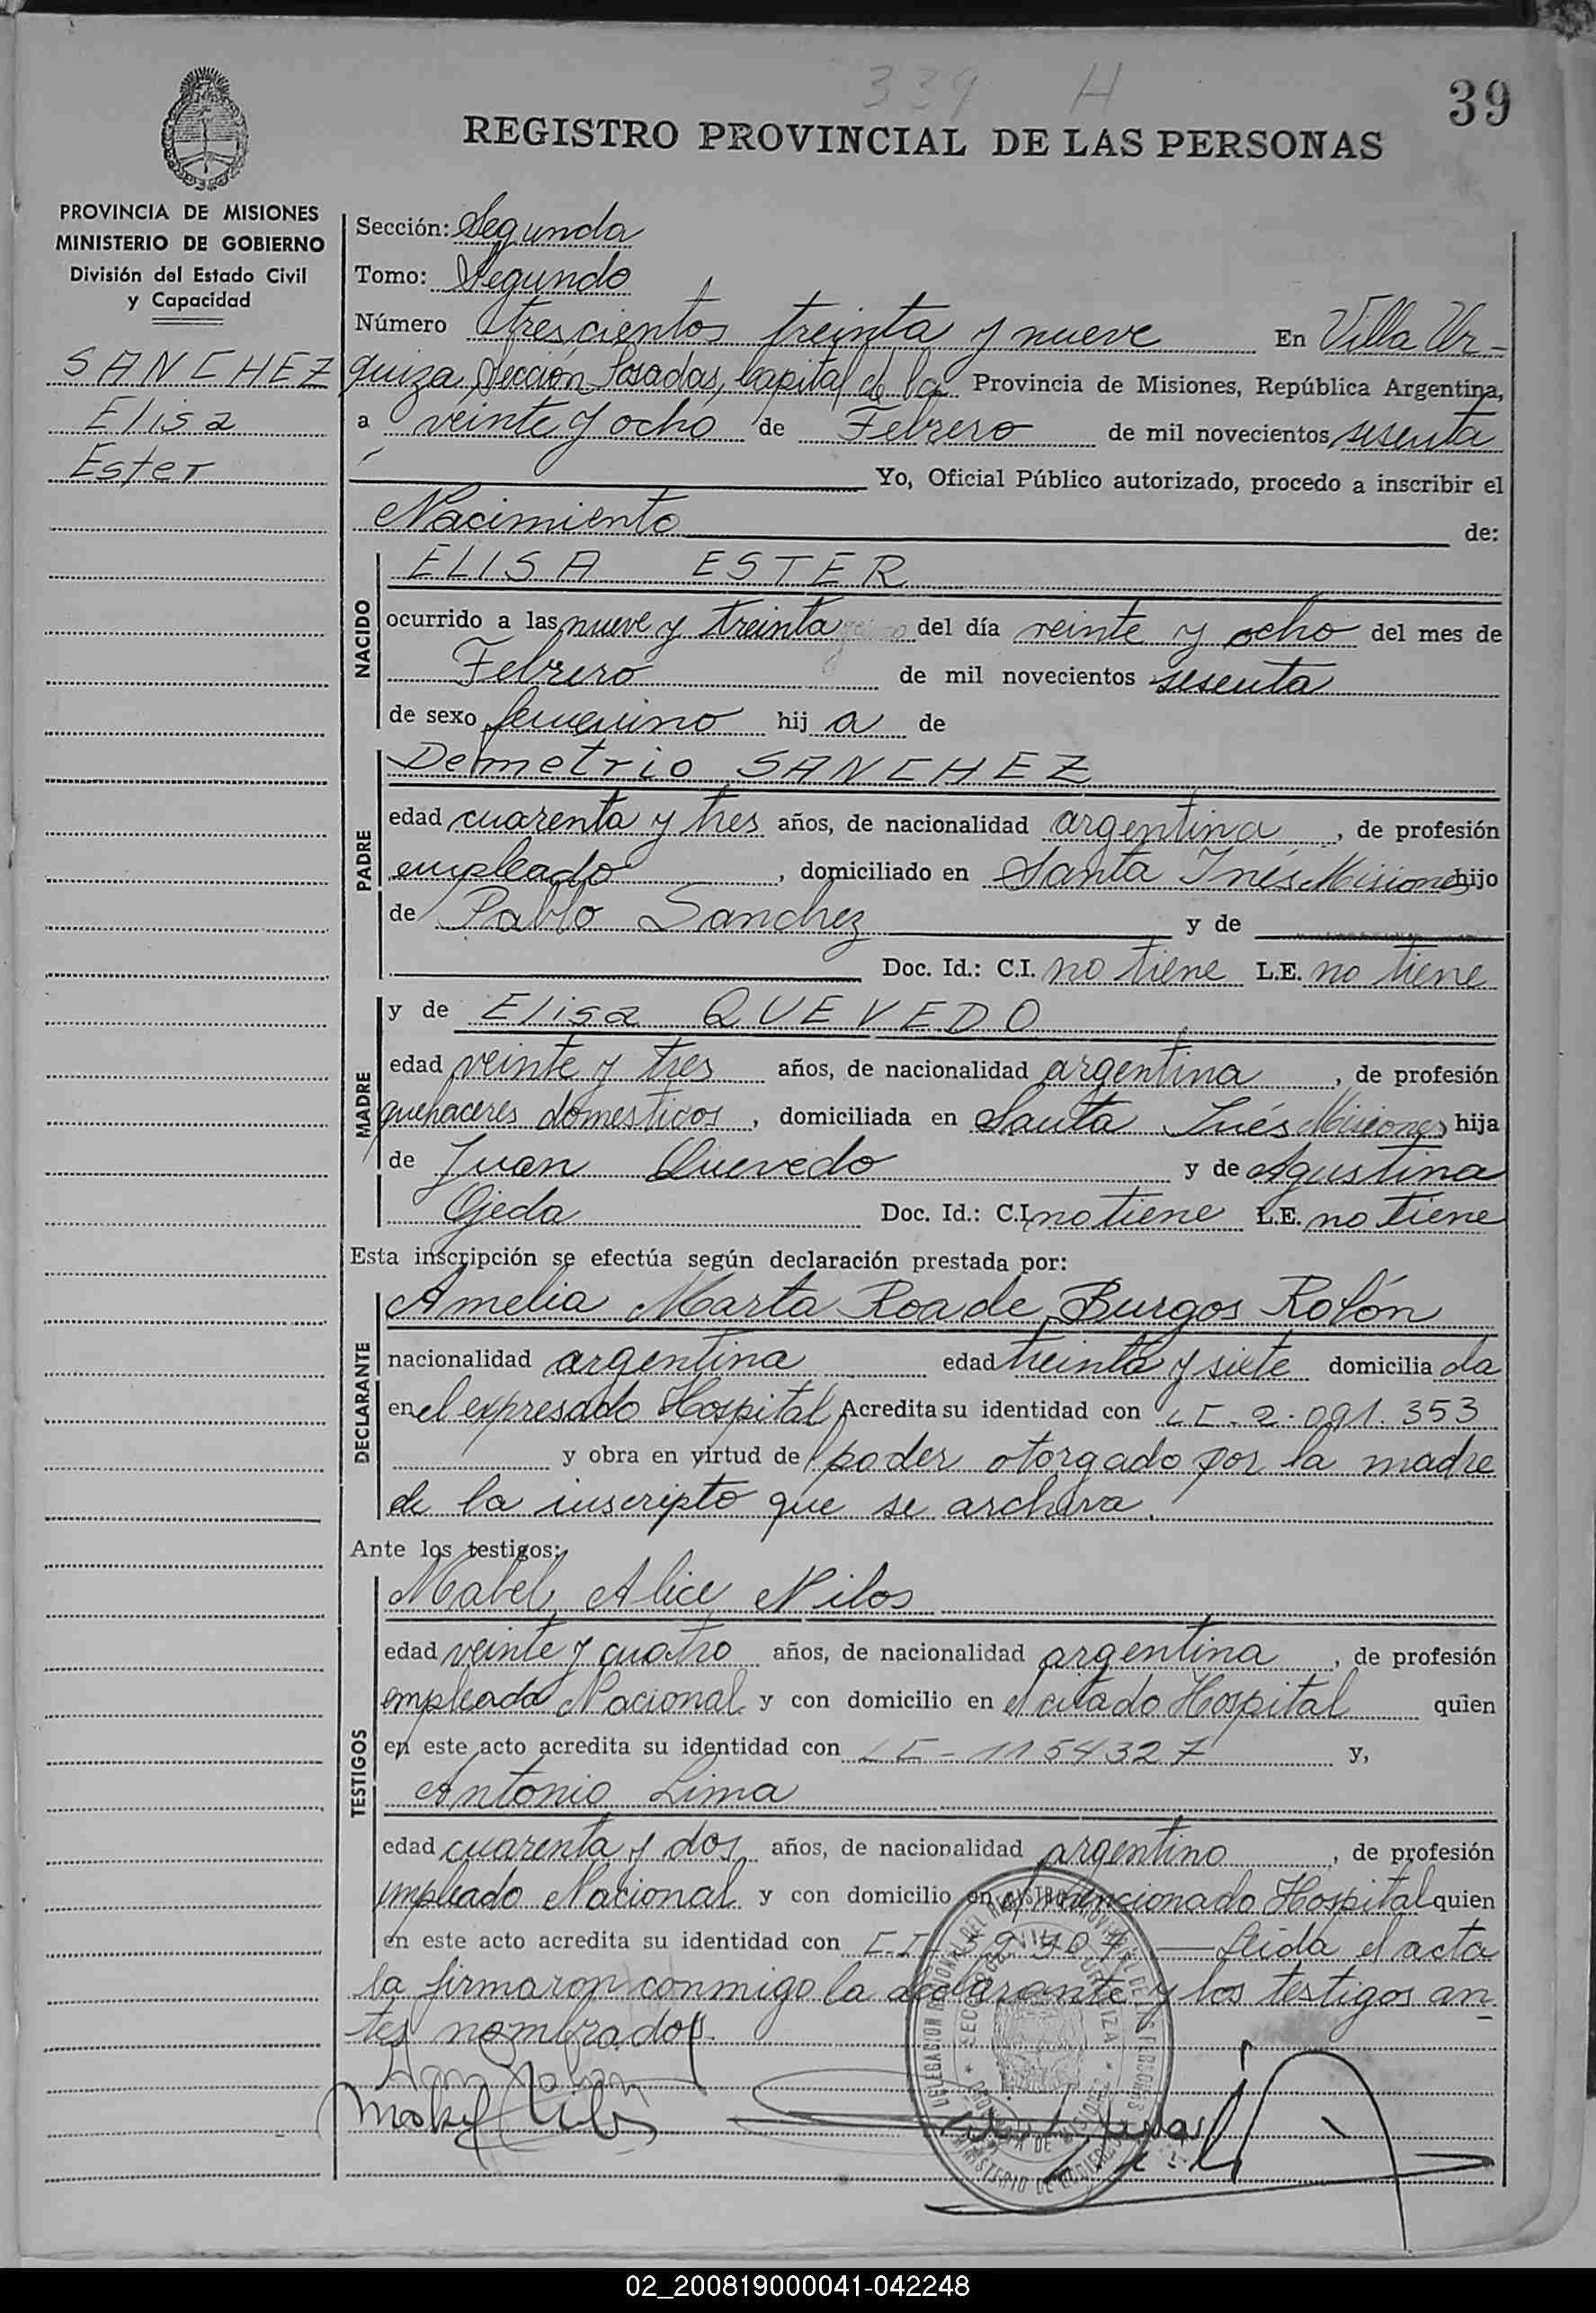 339 H
39
REGISTRO PROVINCIAL DE LAS PERSONAS
PROVINCIA DE MISIONES
MINISTERIO DE GOBIERNO
División del Estado Civil
y Capacidad
SANCHEZ
Elisa
Ester
Sección: Segunda
Tomo: Segundo
Número trescientos treinta y nueve En Villa Ur-
quiza, Sección Posadas, Capital de la Provincia de Misiones, República Argentina,
a veinte y ocho de Febrero de mil novecientos sesenta
Yo, Oficial Público autorizado, procedo a inscribir el
Nacimiento de:
NACIDO
ELISA ESTER
ocurrido a las nueve y treinta del día veinte y ocho del mes de
Febrero de mil novecientos sesenta
de sexo femenino hij a de
PADRE
Demetrio SANCHEZ
edad cuarenta y tres años, de nacionalidad argentina, de profesión
empleado, domiciliado en Santa Inés Misiones hijo
de Pablo Sanchez y de
Doc. Id.: C.I. no tiene L.E. no tiene
MADRE
y de Elisa QUEVEDO
edad veinte y tres años, de nacionalidad argentina, de profesión
quehaceres domesticos, domiciliada en Santa Inés Misiones hija
de Juan Quevedo y de Agustina
Ojeda Doc. Id.: C.I. no tiene L.E. no tiene
Esta inscripción se efectúa según declaración prestada por:
DECLARANTE
Amelia Marta Roa de Burgos Rolón
nacionalidad argentina edad treinta y siete domicilia da
en el expresado Hospital Acredita su identidad con LC-2.091.353
y obra en virtud de poder otorgado por la madre
de la inscripto que se archiva.
Ante los testigos:
TESTIGOS
Mabel Alice Nilos
edad veinte y cuatro años, de nacionalidad argentina, de profesión
empleada Nacional y con domicilio en el citado Hospital quien
en este acto acredita su identidad con LC-1154327 y,
Antonio Lima
edad cuarenta y dos años, de nacionalidad argentino, de profesión
empleado Nacional y con domicilio en el mencionado Hospital quien
en este acto acredita su identidad con C.I. Leida el acta
la firmaron conmigo la declarante y los testigos an
tes nombrados.
02_200819000041-042248